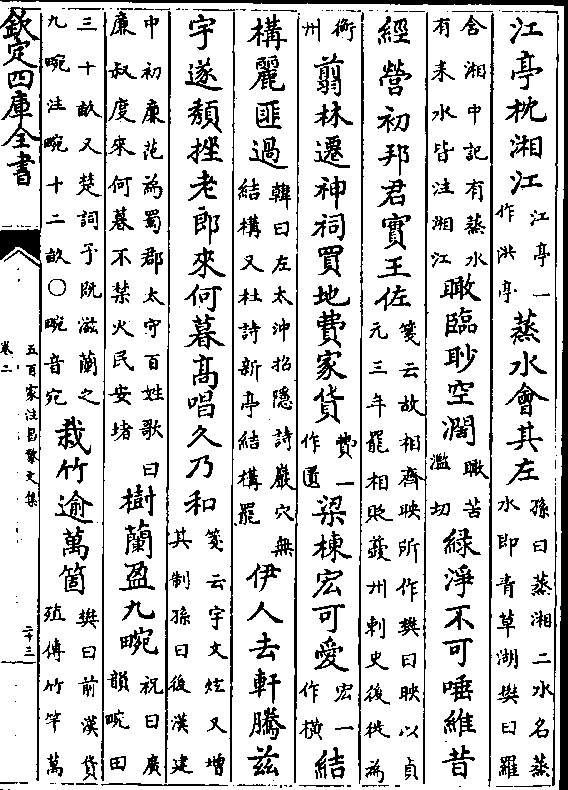 江亭枕湘江江亭一作洪亭蒸水會其左孫曰蒸湘二水名蒸水即青草湖樊曰羅
含湘中記有蒸水有耒水皆注湘江瞰臨眇空濶瞰苦濫切緑淨不可唾維昔
經營初邦君實王佐箋云故相齊映所作樊曰映以貞元三年罷相貶䕫州刺史後徙為
衡州翦林遷神祠買地費家貨費一作匱梁棟宏可愛宏一作橫結
構麗匪過韓曰左太沖招隠詩巖穴無結構又杜詩新亭結構罷伊人去軒騰兹
宇遂頽挫老郎來何暮髙唱久乃和箋云宇文炫又增其制孫曰後漢建
中初廉范為蜀郡太守百姓歌曰廉叔度來何暮不禁火民安堵樹蘭盈九畹祝曰廣韻畹田
三十畝又楚詞予既滋蘭之九畹注畹十二畝○畹音宛栽竹逾萬箇樊曰前漢貨殖傳竹竿萬
欽定四庫全書
五百家注昌黎文集
卷二
二十三